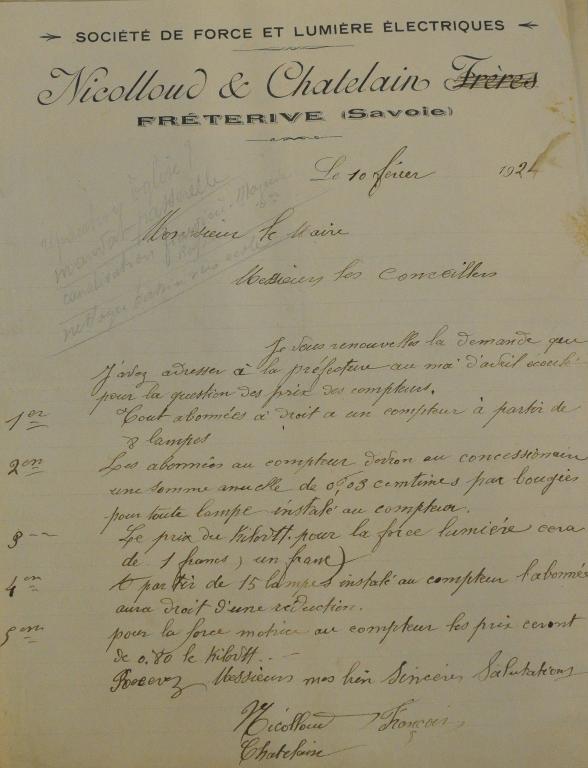 SOCIÉTÉ DE FORCE ET LUMIÈRE ÉLECTRIQUES
Nicolloud & Chatelain Frères
FRÉTERIVE (Savoie)
Le 10 févier 1924
Monsieur le Maire
Messieurs les Conceillers
Je vous renouvelles la demande que
J'avez adresser à la préfecture au mai d'avril écoulé
pour la question des prix des compteurs.
1er Tout abonnées à droit a un compteur à partir de
8 lampes
2em Les abonnées au compteur devron au concessionair
une somme anuelle de 0f,03 centimes par bougies
pour toute lampe instalé au compteur.
3 Le prix du Kilovtt. pour la force lumière cera
de 1 francs, un franc)
4em A partir de 15 lampes instalé au compteur l'abonné
aura droit d'une réduction.
5em pour la force motrice au compteur les prix ceront
de 0.80 le Kilovtt..
Recevez Messieurs mes bien Sincères Salutations
Nicolloud François
Chatelain
mandat passerelle
canalisation